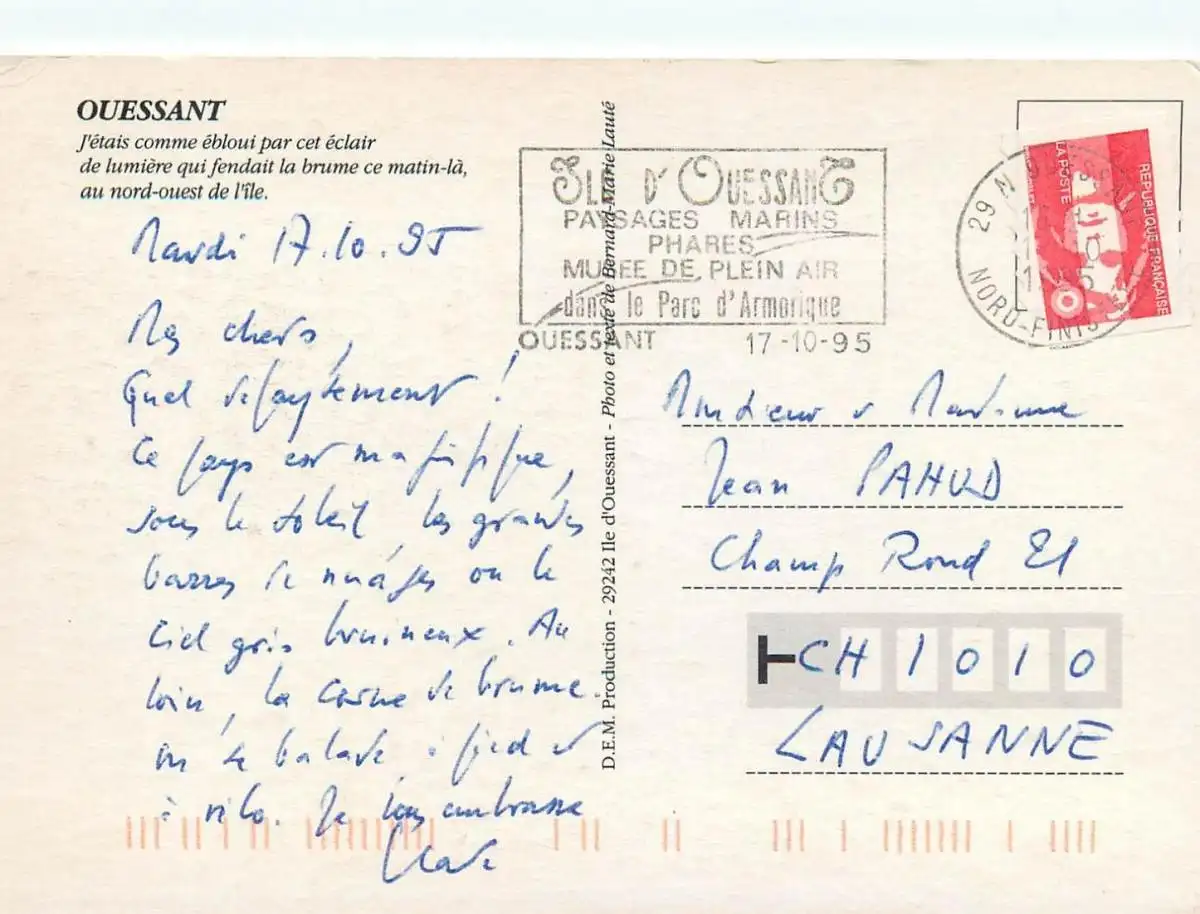 OUESSANT
J'étais comme ébloui par cet éclair
de lumière qui fendait la brume ce matin-là,
au nord-ouest de l'île.
Mardi 17.10.95
Mes chers,
Quel dépaysement !
Ce pays est magnifique,
sous le soleil, les grandes
barres de nuages ou le
ciel gris bruineux. Au
loin, la corne de brume.
on se balade à pied et
à vélo. Je vous embrasse
D.E.M. Production - 29242 Ile d'Ouessant - Photo et texte de Bernard-Marie Lauté
ILE D'OUESSANT
PAYSAGES MARINS
PHARES
MUSEE DE PLEIN AIR
dans le Parc d'Armorique
OUESSANT 17-10-95
REPUBLIQUE FRANÇAISE
LA POSTE
29 N
NORD-FINIS
Monsieur & Madame
Jean PAHUD
Champ Rond 21
T CH 1010
LAUSANNE